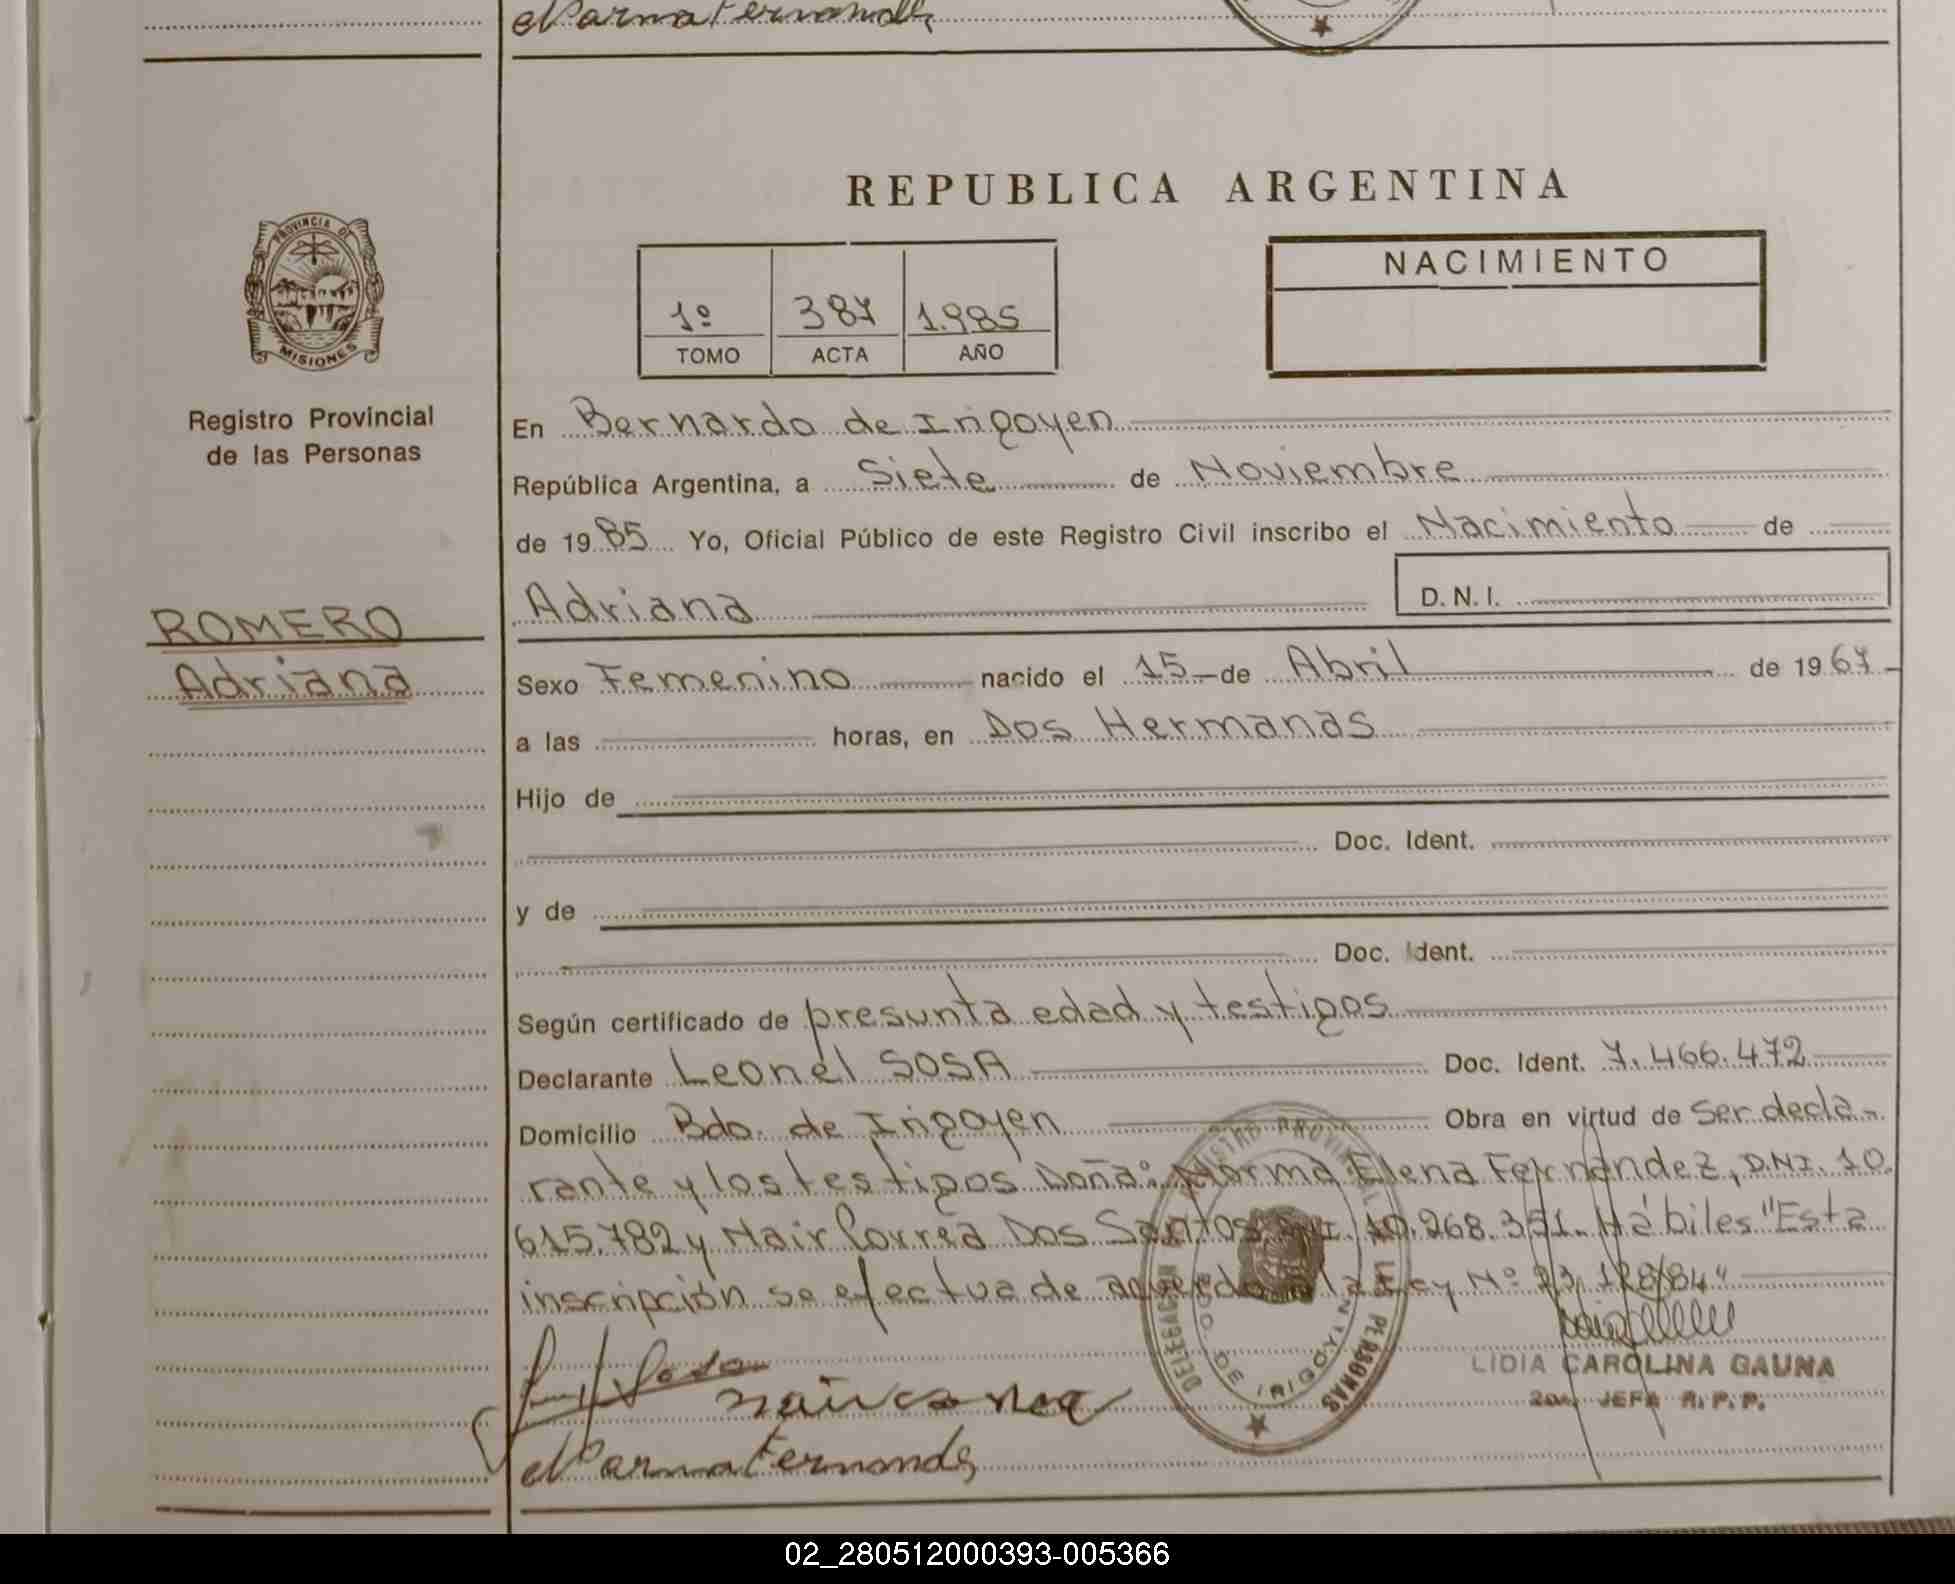 Norma Fernandez
REPUBLICA ARGENTINA
PROVINCIA DE
MISIONES
Registro Provincial
de las Personas
1º 387 1.985
TOMO ACTA AÑO
NACIMIENTO
En Bernardo de Irigoyen
República Argentina, a Siete de Noviembre
de 1985 Yo, Oficial Público de este Registro Civil inscribo el Nacimiento de
Adriana D.N.I.
ROMERO
Adriana
Sexo Femenino nacido el 15 de Abril de 1967
a las horas, en Dos Hermanas
Hijo de
Doc. Ident.
y de
Doc. Ident.
Según certificado de presunta edad y testigos
Declarante Leonel SOSA Doc. Ident. 7.466.472
Domicilio Bdo. de Irigoyen Obra en virtud de Ser decla-
rante y los testigos Doña: Norma Elena Fernandez, D.N.I. 10.
615.782 y Nair Corrêa Dos Santos 10.268.351. Hábiles "Esta
inscripción se efectua de acuerdo a la Ley Nº 23.128/84"
Sosa
Nair Correa
Norma Fernandez
REGISTRO PROVINCIAL DE LAS PERSONAS
DELEGACION
BDO. DE IRIGOYEN
LIDIA CAROLINA GAUNA
2da. JEFA R.P.P.
02_280512000393-005366